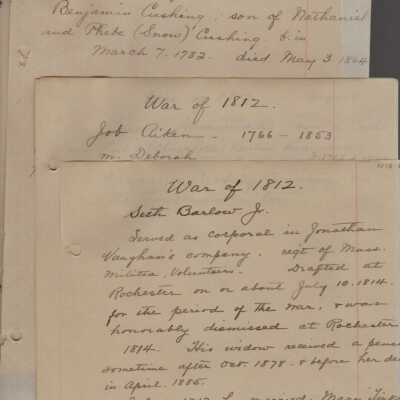 Benjamin Cushing; son of Nathaniel
and Phebe (Snow) Cushing b. in
March 7. 1782. died May 3. 1864
War of 1812.
Job Aiken - 1766 - 1853
m. Deborah
War of 1812.
Seth Barlow Jr.
Served as corporal in Jonathan
Vaughan's company. regt of Mass.
Militia, Volunteers. Drafted at
Rochester on or about July 10. 1814.
for the period of the war, & was
honorably dismissed at Rochester
1814. His widow received a pens
sometime after Oct. 1878. & before her de
in April. 1885.
married. Mary